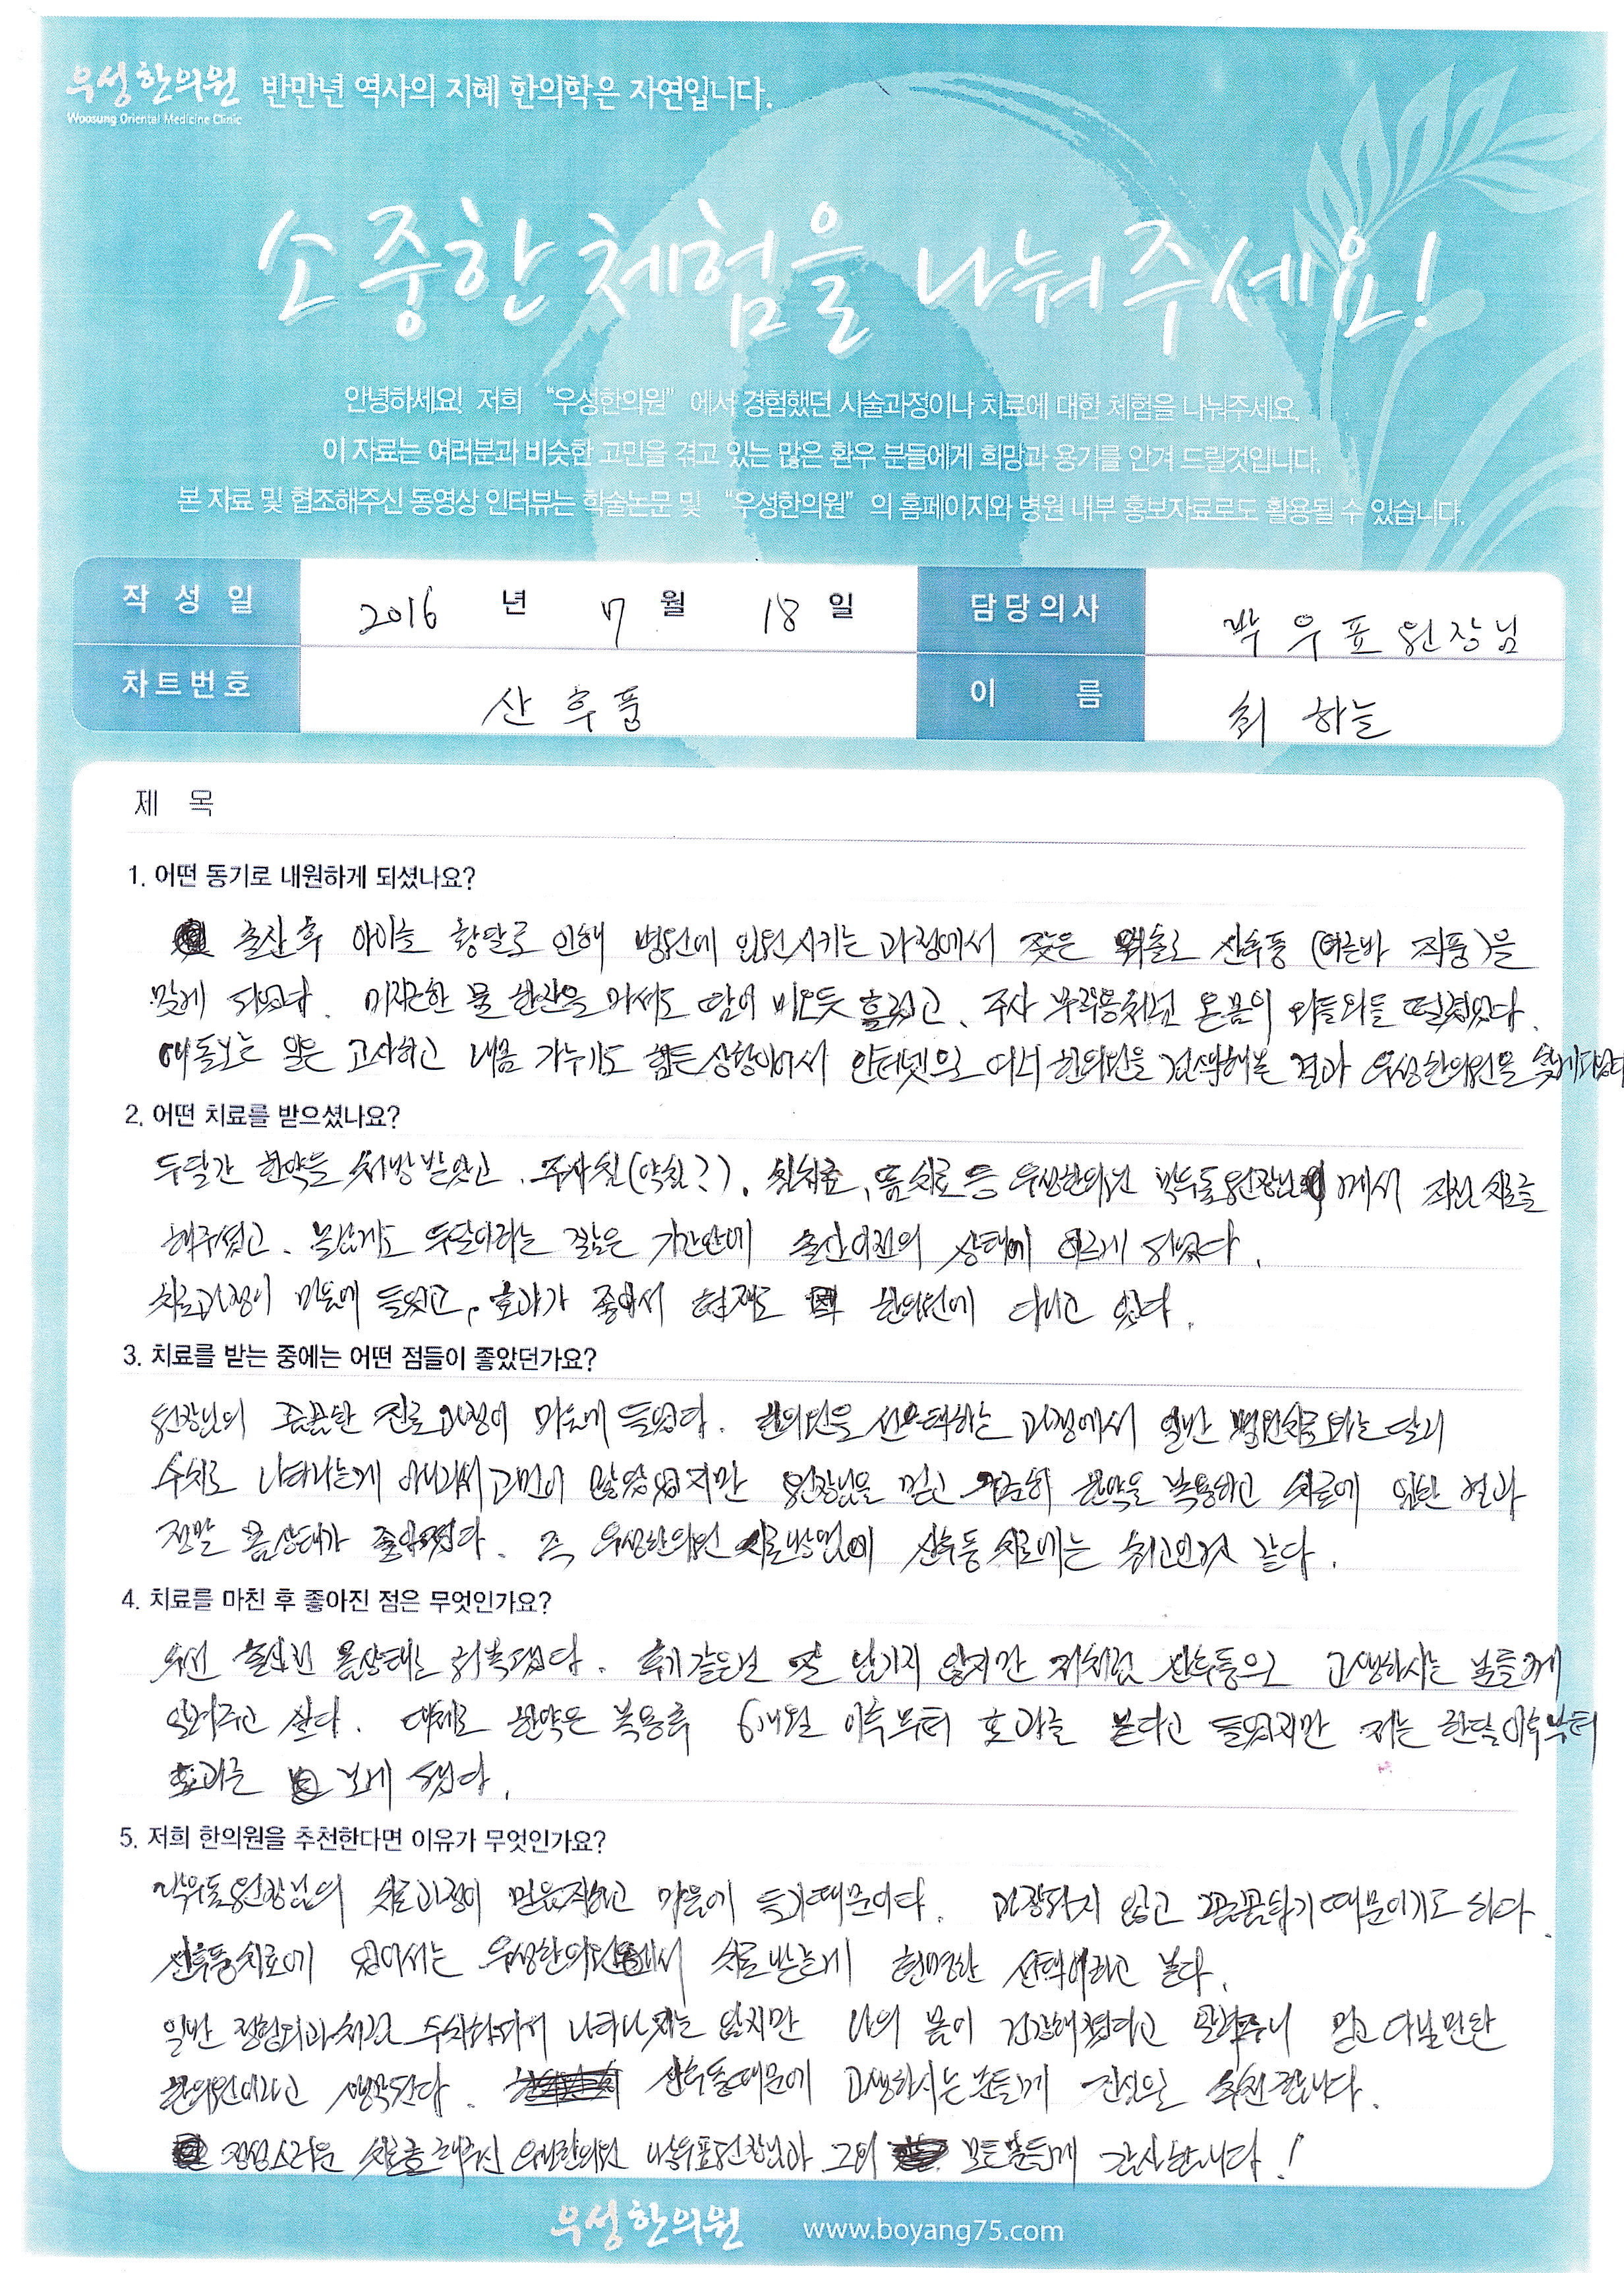 우성한의원 반만년 역사의 지혜 한의학은 자연입니다.
Woosung Oriental Medicine Clinic
소중한 체험을 나눠주세요!
안녕하세요! 저희 “우성한의원” 에서 경험했던 시술과정이나 치료에 대한 체험을 나눠주세요.
이 자료는 여러분과 비슷한 고민을 겪고 있는 많은 환우 분들에게 희망과 용기를 안겨 드릴것입니다.
본 자료 및 협조해주신 동영상 인터뷰는 학술논문 및 “우성한의원” 의 홈페이지와 병원 내부 홍보자료로도 활용될 수 있습니다.
작성일 2016 년 7 월 18 일 담당의사 박우표 원장님
차트번호 산후풍 이름 최하늘
제 목
1. 어떤 동기로 내원하게 되셨나요?
출산후 아이를 황달로 인해 병원에 입원시키는 과정에서 잦은 외출로 산후풍 (이른바 직풍)을
맞게 되었다. 미지근한 물 한잔을 마셔도 땀이 비오듯 흘렀고, 주사 부작용처럼 온몸이 와들와들 떨렸었다.
애 돌보는 일은 고사하고 내몸 가누기도 힘든 상황이어서 인터넷으로 여러 한의원을 검색해본 결과 우성한의원을 찾게되었다
2. 어떤 치료를 받으셨나요?
두달간 한약을 처방 받았고, 주사침(약침?), 침치료, 뜸치료 등 우성한의원 박우표원장님께서 직접 치료를
해주셨고, 놀랍게도 두달이라는 짧은 기간만에 출산이전의 상태에 이르게 되었다.
치료과정이 마음에 들었고, 효과가 좋아서 현재도 한의원에 다니고 있다.
3. 치료를 받는 중에는 어떤 점들이 좋았던가요?
원장님의 꼼꼼한 진료과정이 마음에 들었다. 한의원을 선택하는 과정에서 일반 병원치료와는 달리
수치로 나타나는게 아니라서 고민이 많았었지만 원장님을 믿고 꾸준히 한약을 복용하고 치료에 임한 결과
정말 몸상태가 좋아졌다. 즉, 우성한의원 치료방법이 산후풍 치료에는 최고인것 같다.
4. 치료를 마친 후 좋아진 점은 무엇인가요?
우선 출산전 몸상태로 회복되었다. 후기같은건 잘 남기지 않지만 저처럼 산후풍으로 고생하시는 분들께
알려주고 싶다. 대체로 한약은 복용후 6개월 이후부터 효과를 본다고 들었지만 저는 한달이후부터
효과를 보게 되었다.
5. 저희 한의원을 추천한다면 이유가 무엇인가요?
박우표원장님의 치료과정이 믿음직하고 마음에 들기때문이다. 과장되지 않고 꼼꼼하기 때문이기도 하다.
산후풍치료에 있어서는 우성한의원에서 치료받는게 현명한 선택이라고 본다.
일반 정형외과처럼 수치화되서 나타나지는 않지만 나의 몸이 건강해졌다고 말해주니 믿고 다닐만한
한의원이라고 생각한다. 산후풍때문에 고생하시는분들께 진심으로 추천합니다.
정성스러운 치료를 해주신 우성한의원 박우표원장님과 그외 모든분들께 감사합니다!
우성한의원 www.boyang75.com